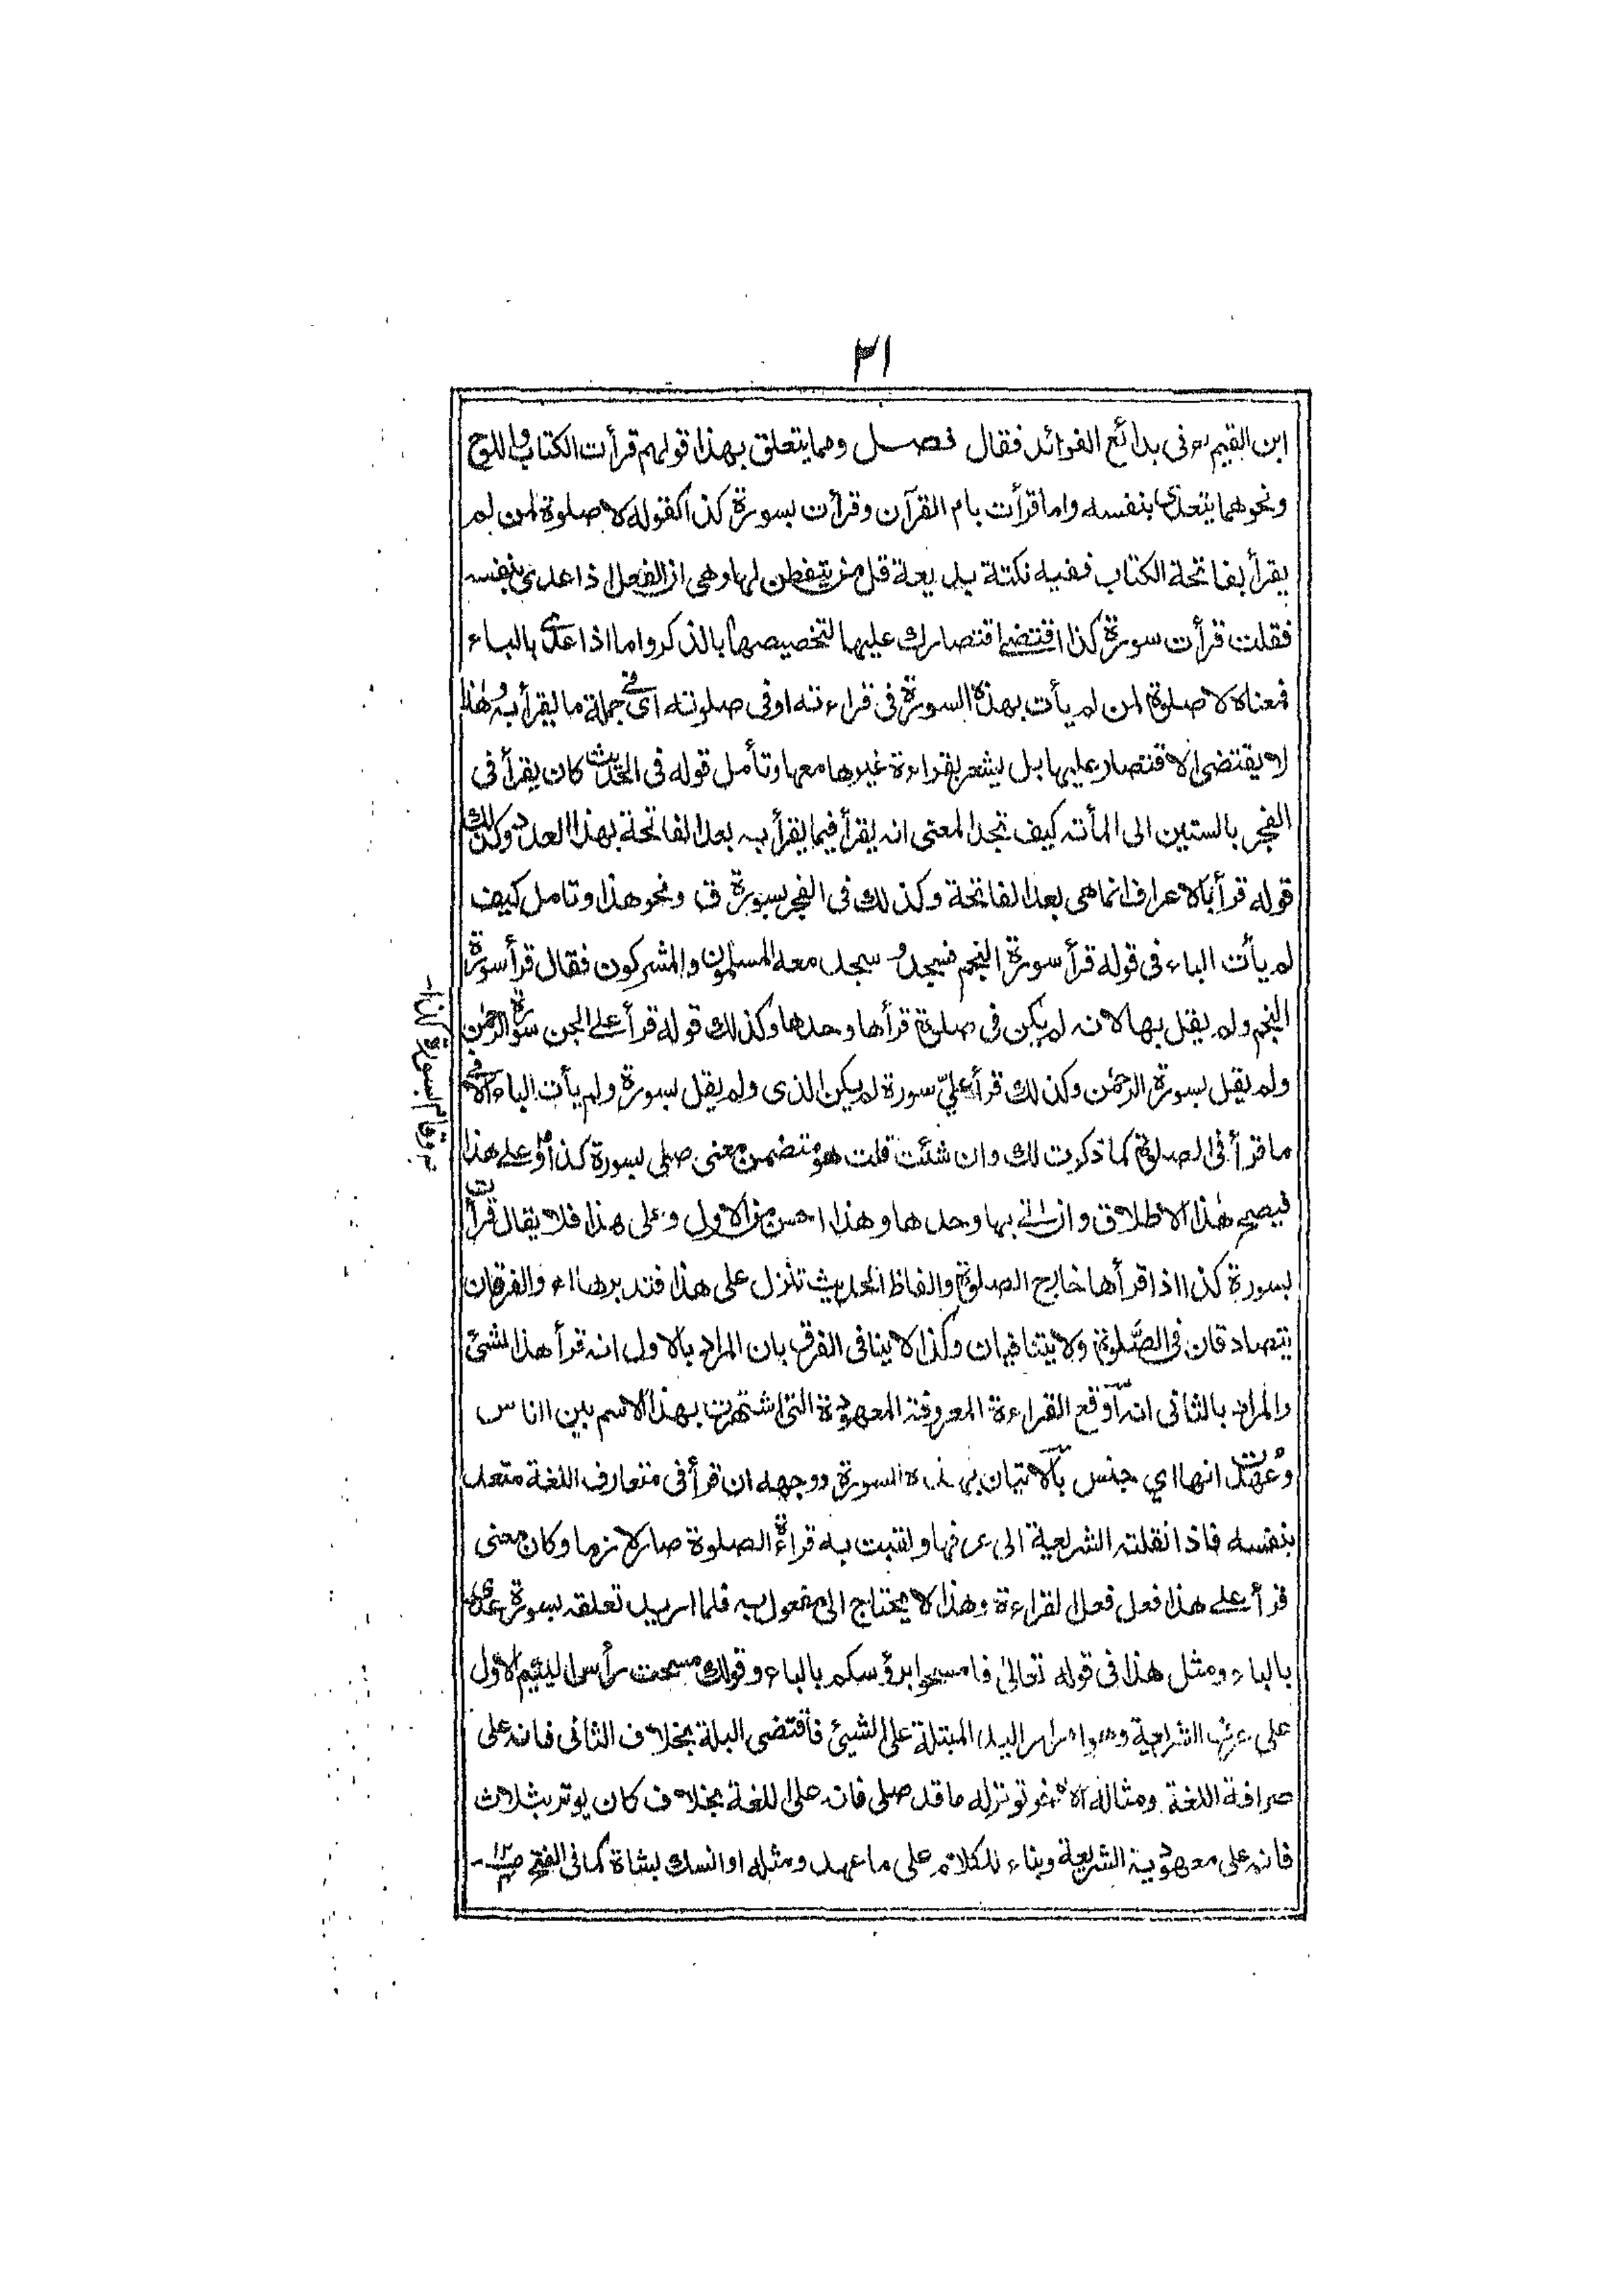 ٣١
ابن القيم رح فى بدائع الفوائد فقال فصــل ومما يتعلق بهذا قولهم قرأت الكتاب واللوح
ونحوهما يتعدى بنفسه واما قرأت بام القرآن وقرأت بسورة كذا كقوله لا صلوة لمن لم
يقرأ بفاتحة الكتاب ففيه نكتة بديعة قل من يتفطن لها وهى ان الفعل اذا عدى بنفسه
فقلت قرأت سورة كذا اقتضى اقتصارك عليها لتخصيصها بالذكر واما اذا عدى بالباء
فمعناه لا صلوة لمن لم يأت بهذه السورة فى قراءته او فى صلوته اى فى جملة ما يقرأ به وهذا
لا يقتضى الاقتصار عليها بل يشعر بقراءة غيرها معها وتأمل قوله فى الحديث كان يقرأ فى
الفجر بالستين الى المأته كيف تجد المعنى انه يقرأ فيما يقرأ به بعد الفاتحة بهذا العدد وكذلك
قوله قرأ بالاعراف انما هى بعد الفاتحة وكذلك فى الفجر بسورة ق ونحو هذا وتامل كيف
لم يأت الباء فى قوله قرأ سورة النجم فسجد وسجد معه المسلمون والمشركون فقال قرأ سورة
النجم ولم يقل بها لانه لم يكن فى صلوة قرأها وحدها وكذلك قوله قرأ على الجن سورة الرحمن
ولم يقل بسورة الرحمن وكذلك قرأ علىّ سورة لم يكن الذى ولم يقل بسورة ولم يأت الباء الا فى
ما قرأ فى الصلوة كما ذكرت لك وان شئت قلت هو متضمن معنى صلى بسورة كذا وعلى هذا
فيصح هذا الاطلاق وان اتى بها وحدها وهذا احسن من الاول وعلى هذا فلا يقال قرأت
بسورة كذا اذا قرأها خارج الصلوة والفاظ الحديث تنزل على هذا فتدبرها اه والفرقان
يتصادقان فى الصلوة ولا يتنافيان وكذا لا ينافى الفرق بان المراد بالاول انه قرأ هذا الشئ
والمراد بالثانى انه اوقع القراءة المعروفة المعهودة التى اشتهرت بهذا الاسم بين الناس
وعهدت انها اي جنس بالاتيان بهذه السورة ووجهه ان قرأ فى متعارف اللغة متعد
بنفسه فاذا نقلته الشريعة الى عرفها ولقبت به قراءة الصلوة صار لازما وكان معنى
قرأ على هذا فعل فعل القراءة وهذا لا يحتاج الى مفعول به فلما اريد تعلقه بسورة عدى
بالباء ومثل هذا فى قوله تعالىٰ فامسحوا برؤسكم بالباء وقولك مسحت رأس اليتيم الاول
على عرفها الشرعية وهو امرار اليد المبتلة على الشيئ فاقتضى البلة بخلاف الثانى فانه على
صرافة اللغة ومثاله توتر له ما قد صلى فانه على اللغة بخلاف كان يوتر بثلاث
فانه على معهودية الشريعة وبناء للكلام على ما عهد ومثله او انسك بشاة كما فى الفتح
او قام بسورة كذا ـ